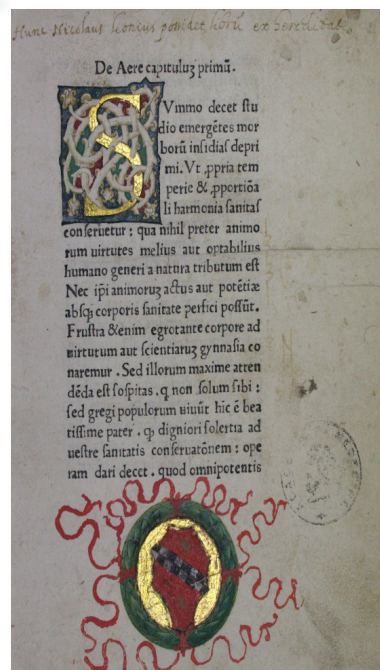 Hunc Nicolaus Leonicus possidet librum ex hereditate
De Aere capituluꝫ primũ.
SVmmo decet ſtu
dio emergẽtes mor
borũ inſidiaſ depri
mi. Vt ꝓpria tem
perie & ꝓportiõa
li harmonia ſanitas
conſeruetur : qua nihil preter animo
rum uirtutes melius aut optabilius
humano generi a natura tributum eſt
Nec ip̃i animoruꝫ actus aut potẽtiæ
abſqꝫ corporis ſanitate perfici poſſũt.
Fruſtra &enim egrotante corpore ad
uirtutum aut ſcientiaruꝫ gynnaſia co
naremur . Sed illorum maxime atten
dẽda eſt ſoſpitas . q̃ non ſolum ſibi :
ſed gregi populorum uiuũt hic ẽ bea
tiſſime pater . qꝫ digniori ſolertia ad
ueſtre ſanitatis conſeruatõnem : ope
ram dari decet . quod omnipotentis